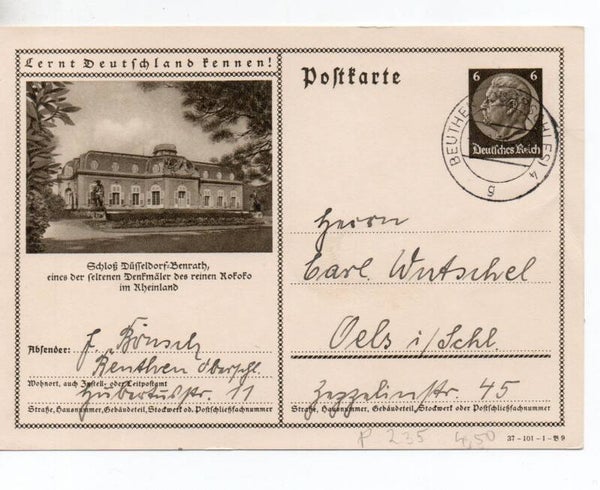 Lernt Deutschland kennen!
Schloß Düsseldorf-Benrath,
eines der seltenen Denkmäler des reinen Rokoko
im Rheinland
Absender: J. Bönisch
Beuthen Oberschl.
Wohnort, auch Zustell- oder Leitpostamt
Hubertusstr. 11
Straße, Hausnummer, Gebäudeteil, Stockwerk od. Postschließfachnummer
Postkarte
6 6
Deutsches Reich
BEUTHE SCHLES) 4
g
Herrn
Carl Wutschel
Oels i/Schl.
Zeppelinstr. 45
Straße, Hausnummer, Gebäudeteil, Stockwerk oder Postschließfachnummer
P 235 4,50
37-101-1-B9